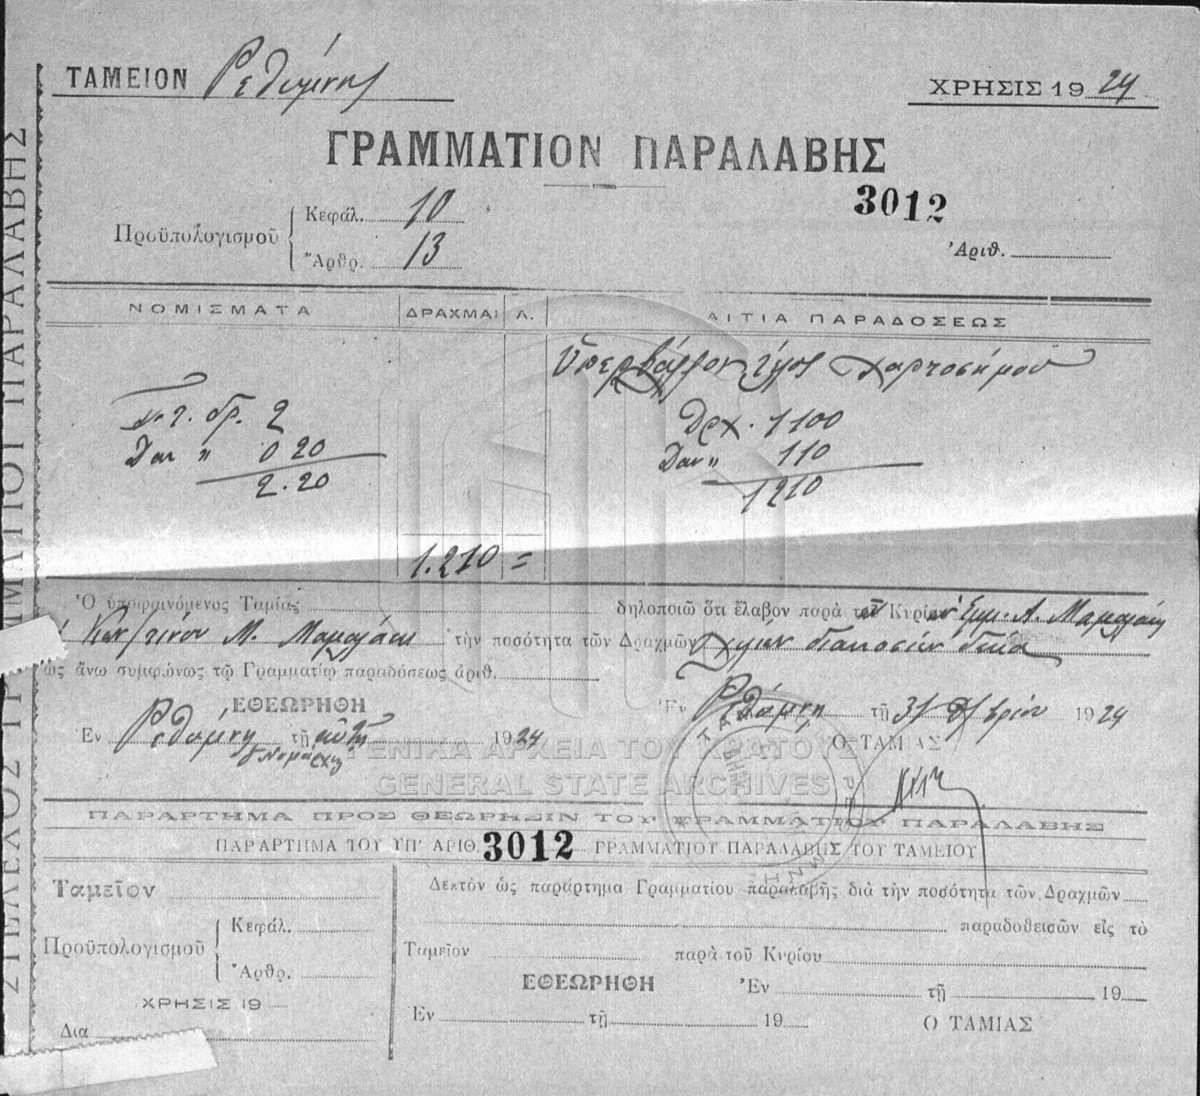 ΤΑΜΕΙΟΝ Ρεθύμνης
ΧΡΗΣΙΣ 1924
ΓΡΑΜΜΑΤΙΟΝ ΠΑΡΑΛΑΒΗΣ
3012
Προϋπολογισμοῦ
Κεφάλ. 10
Ἄρθρ. 13
Ἀριθ.
ΝΟΜΙΣΜΑΤΑ ΔΡΑΧΜΑΙ Λ. ΑΙΤΙΑ ΠΑΡΑΔΟΣΕΩΣ
Ὑπερβάλλον τέλος χαρτοσήμου
δρ. 2
Δαν " 0 20
2.20
Δρχ. 1100
Δαν " 110
1210
1.210 =
Ὁ ὑποφαινόμενος Ταμίας δηλοποιῶ ὅτι ἔλαβον παρὰ τοῦ Κυρίου Εμμ. Α. Μαμαλάκη
Κωνστίνου Μ. Μαμαλάκη τὴν ποσότητα τῶν Δραχμῶν χιλίων διακοσίων δέκα
ὡς ἄνω συμφώνως τῷ Γραμματίῳ παραδόσεως ἀριθ.
ΕΘΕΩΡΗΘΗ
Ἐν Ρεθύμνῃ τῇ αὐτῇ 1924
Ἐν Ρεθύμνῃ τῇ 31 1924
Ὁ ΤΑΜΙΑΣ
ΓΕΝΙΚΑ ΑΡΧΕΙΑ ΤΟΥ ΚΡΑΤΟΥΣ
GENERAL STATE ARCHIVES
ΠΑΡΑΡΤΗΜΑ ΠΡΟΣ ΘΕΩΡΗΣΙΝ ΤΟΥ ΓΡΑΜΜΑΤΙΟΥ ΠΑΡΑΛΑΒΗΣ
ΠΑΡΑΡΤΗΜΑ ΤΟΥ ΥΠ' ΑΡΙΘ. 3012 ΓΡΑΜΜΑΤΙΟΥ ΠΑΡΑΛΑΒΗΣ ΤΟΥ ΤΑΜΕΙΟΥ
Ταμεῖον
Προϋπολογισμοῦ
Κεφάλ.
Ἄρθρ.
ΧΡΗΣΙΣ 19
Δια
Δεκτὸν ὡς παράρτημα Γραμματίου παραλαβῆς διὰ τὴν ποσότητα τῶν Δραχμῶν
παραδοθεισῶν εἰς τὸ
Ταμεῖον παρὰ τοῦ Κυρίου
ΕΘΕΩΡΗΘΗ Ἐν τῇ 19
Ἐν τῇ 19 Ο ΤΑΜΙΑΣ